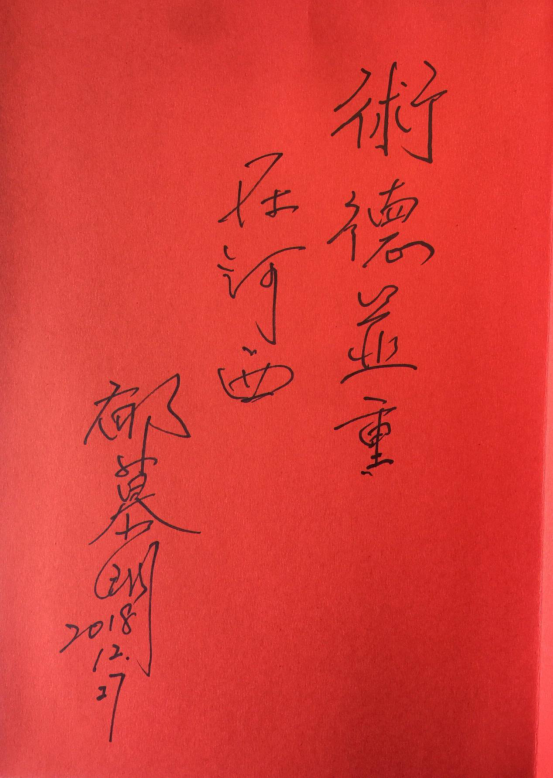 術德並重
在河西
郁慕明
2018.
12.
27